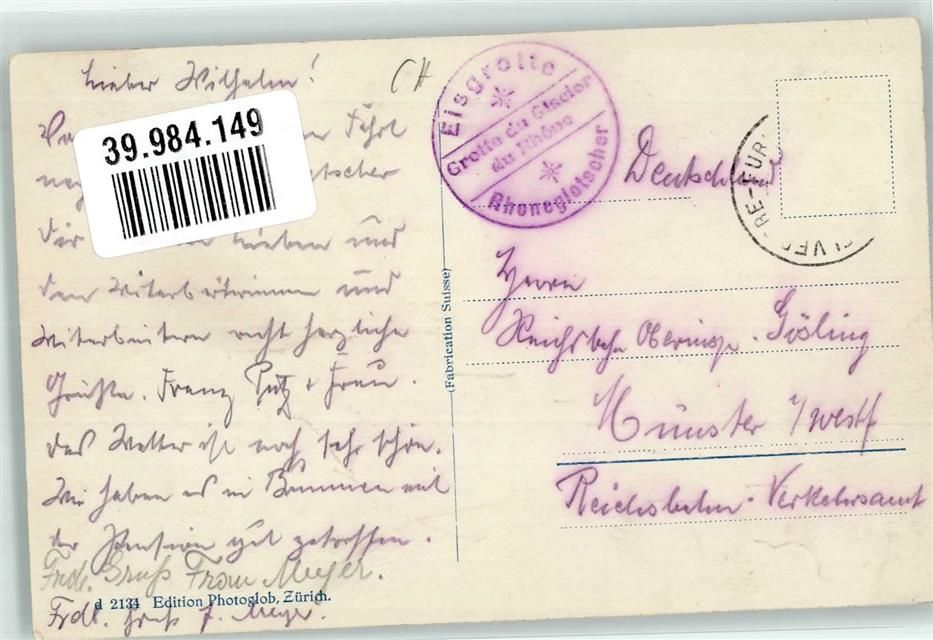 Lieber Wilhelm!
39.984.149
Fahrt
tscher
Dir lieben und
den Mitarbeiterinnen und
Mitarbeitern recht herzliche
Grüße. Franz Putz + Frau.
das Wetter ist noch sehr schön.
Wir haben es in Brunnen mit
der Pension gut getroffen.
Frdl. Gruß Frau Meyer.
d 2134 Edition Photoglob, Zürich.
Frdl. Gruß F. Meyer.
CH
Eisgrotte
Grotte du Glacier
du Rhône
Rhonegletscher
(Fabrication Suisse)
RE-FUR
Deutschland
Herrn
Reichsbahn Oberinsp. Gösling
Münster i/Westf
Reichsbahn-Verkehrsamt